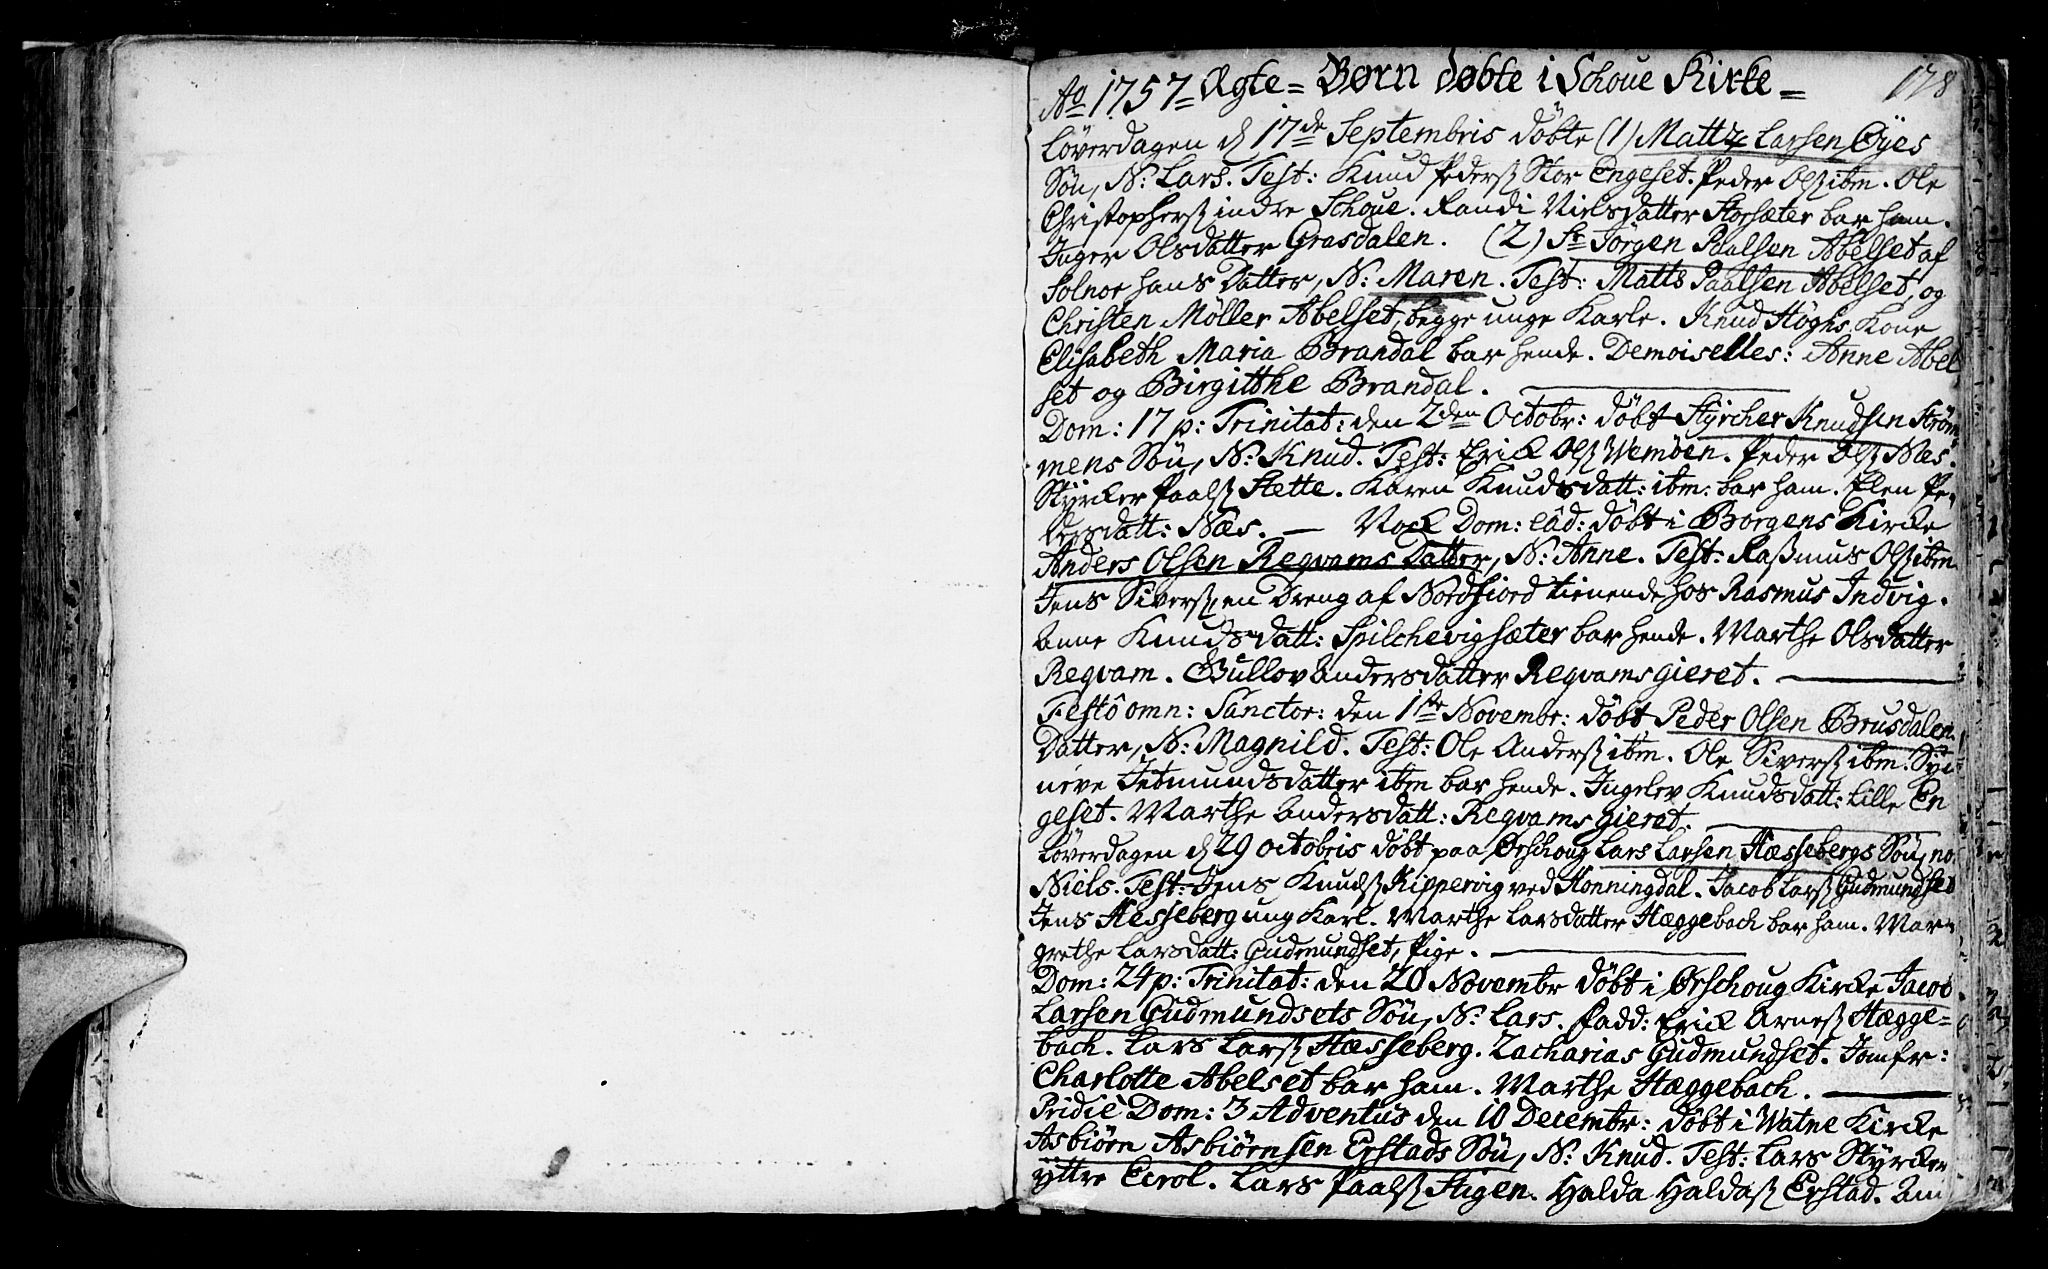 Ao 1757 = Ægte = Børn døbte i Schoue Kirke = 178
Løverdagen d 17de Septembris døbte (1) Mattz Larsen Øyes
Søn, N: Lars. Test: Knud Peders Stor Engeset. Peder Ols ibm. Ole
Christophers indre Schoue. Randi Nielsdatter Storsæter bar ham.
Inger Olsdatter Grasdalen. (2) Sr Jørgen Paalsen Abelset af
Solnor hans Datter, N: Maren. Test: Matts Paalsen Abelset, og
Christen Möller Abelset, begge unge Karle. Knud Høghs Kone
Elisabeth Maria Brandal bar hende. Demoiselles: Anne Abel
set og Birgitthe Brandal.
Dom: 17 p: Trinitat: den 2den Octobr: døbt Styrcher Knudsen Strøm
mens Søn, N: Knud. Test: Erick Ols Wemøen. Peder Ols Næs.
Styrcker Paals Stette. Karen Knudsdatt: ibm: bar ham. Elen Pe-
dersdatt: Næs. — Nock Dom: eâd: døbt i Borgens Kircke
Anders Olsen Reqvams Datter, N: Anne. Test: Rasmus Ols ibm
Jens Sivers, en Dreng af Nordfiord tienende hos Rasmus Indvig.
Anne Knudsdatt: Spilchevigsæter bar hende. Marthe Olsdatter
Reqvam. Gullov Andersdatter Reqvamsgieret.
Festô omn: Sanctor: den 1ste Novembr: døbt Peder Olsen Brusdalen
Datter, N: Magnild. Test: Ole Anders ibm. Ole Sivers ibm. Syn-
neve Jetmundsdatter ibm bar hende. Ingelev Knudsdatt: Lille En
geset. Marthe Andersdatt: Reqvamsgieret.
Løverdagen d 29 octobris døbt paa Ørschoug Lars Larsen Hæssebergs Søn, no:
Niels. Test: Jens Knuds Kippervig ved Honningdal. Jacob Lars Gudmundset
Jens Hesseberg ung Karl. Marthe Larsdatter Hæggebach bar ham. Mar-
grethe Larsdatt: Gudmundset, Pige.
Dom: 24 p: Trinitat: den 20 Novembr døbt i Ørschoug Kircke Jacob
Larsen Gudmundsets Søn, N: Lars. Fadd: Erick Arnes Hægge=
bach. Lars Lars Hæsseberg. Zacharias Gudmundset. Jomfr:
Charlotte Abelset bar ham. Marthe Hæggebach.
Pridiè Dom: 3 Adventus den 10 Decembr: døbt i Watne Kircke
Asbiørn Asbiørnsen Erstads Søn, N: Knud. Test: Lars Styrcker
yttre Ecrol. Lars Paals Stigen. Halda Haldas Erstad. Ani